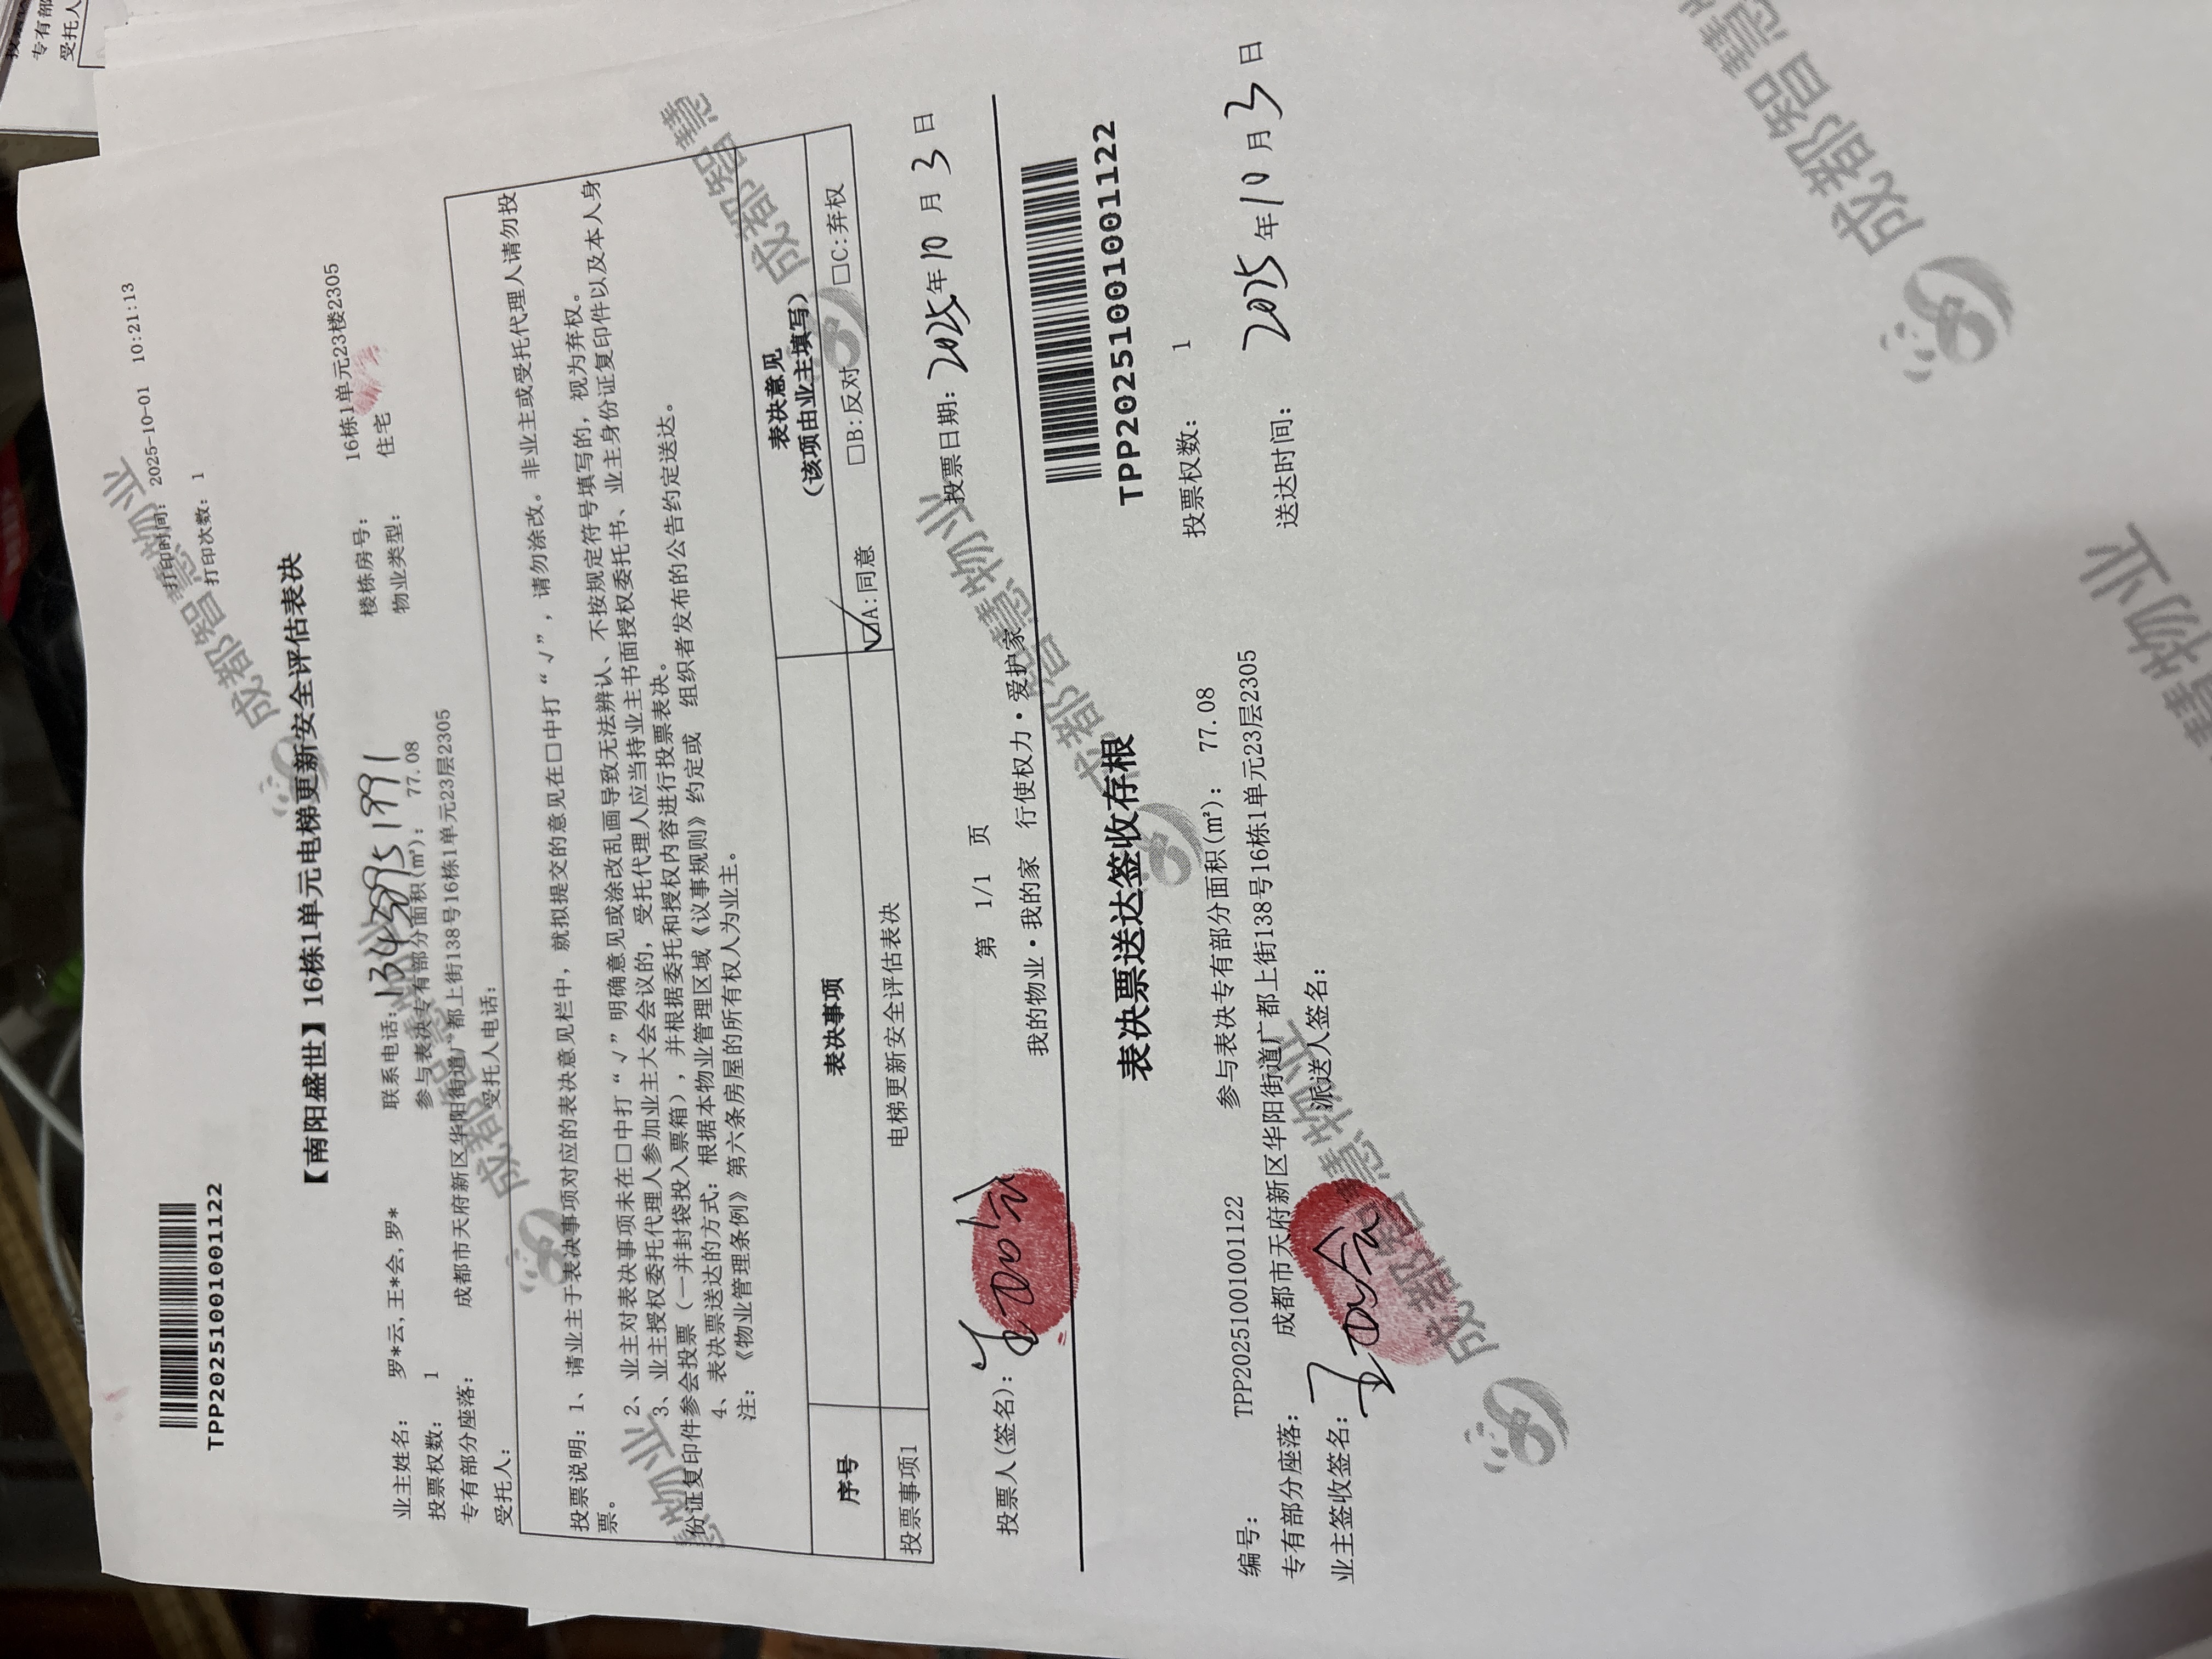 投票说
专有部
受托人
打印时间： 2025-10-01 10:21:13
TPP20251001001122
打印次数： 1
【南阳盛世】16栋1单元电梯更新安全评估表决
业主姓名： 罗*云,王*会,罗* 联系电话： 13438951991 楼栋房号： 16栋1单元23楼2305
投票权数： 1 参与表决专有部分面积(㎡)： 77.08 物业类型： 住宅
专有部分座落： 成都市天府新区华阳街道广都上街138号16栋1单元23层2305
受托人： 受托人电话：
投票说明：1、请业主于表决事项对应的表决意见栏中，就拟提交的意见在□中打“√”，请勿涂改。非业主或受托代理人请勿投
票。
2、业主对表决事项未在□中打“√”明确意见或涂改乱画导致无法辨认、不按规定符号填写的，视为弃权。
3、业主授权委托代理人参加业主大会会议的，受托代理人应当持业主书面授权委托书、业主身份证复印件以及本人身
份证复印件参会投票（一并封袋投入票箱），并根据委托和授权内容进行投票表决。
4、表决票送达的方式：根据本物业管理区域《议事规则》约定或 组织者发布的公告约定送达。
注：《物业管理条例》第六条房屋的所有权人为业主。
序号 表决事项 表决意见
（该项由业主填写）
投票事项1 电梯更新安全评估表决 ☑A:同意 □B:反对 □C:弃权
投票人(签名)： 投票日期： 2025年10月3日
第 1/1 页
我的物业·我的家 行使权力·爱护家
表决票送达签收存根
TPP20251001001122
编号： TPP20251001001122 参与表决专有部分面积(㎡)： 77.08 投票权数： 1
专有部分座落： 成都市天府新区华阳街道广都上街138号16栋1单元23层2305 送达时间： 2025年10月3日
业主签收签名： 派送人签名：
成都智慧物业
成都智慧物业
慧物业
成都智慧
成都智慧物业
成都智慧物业
成都智慧物
慧物业